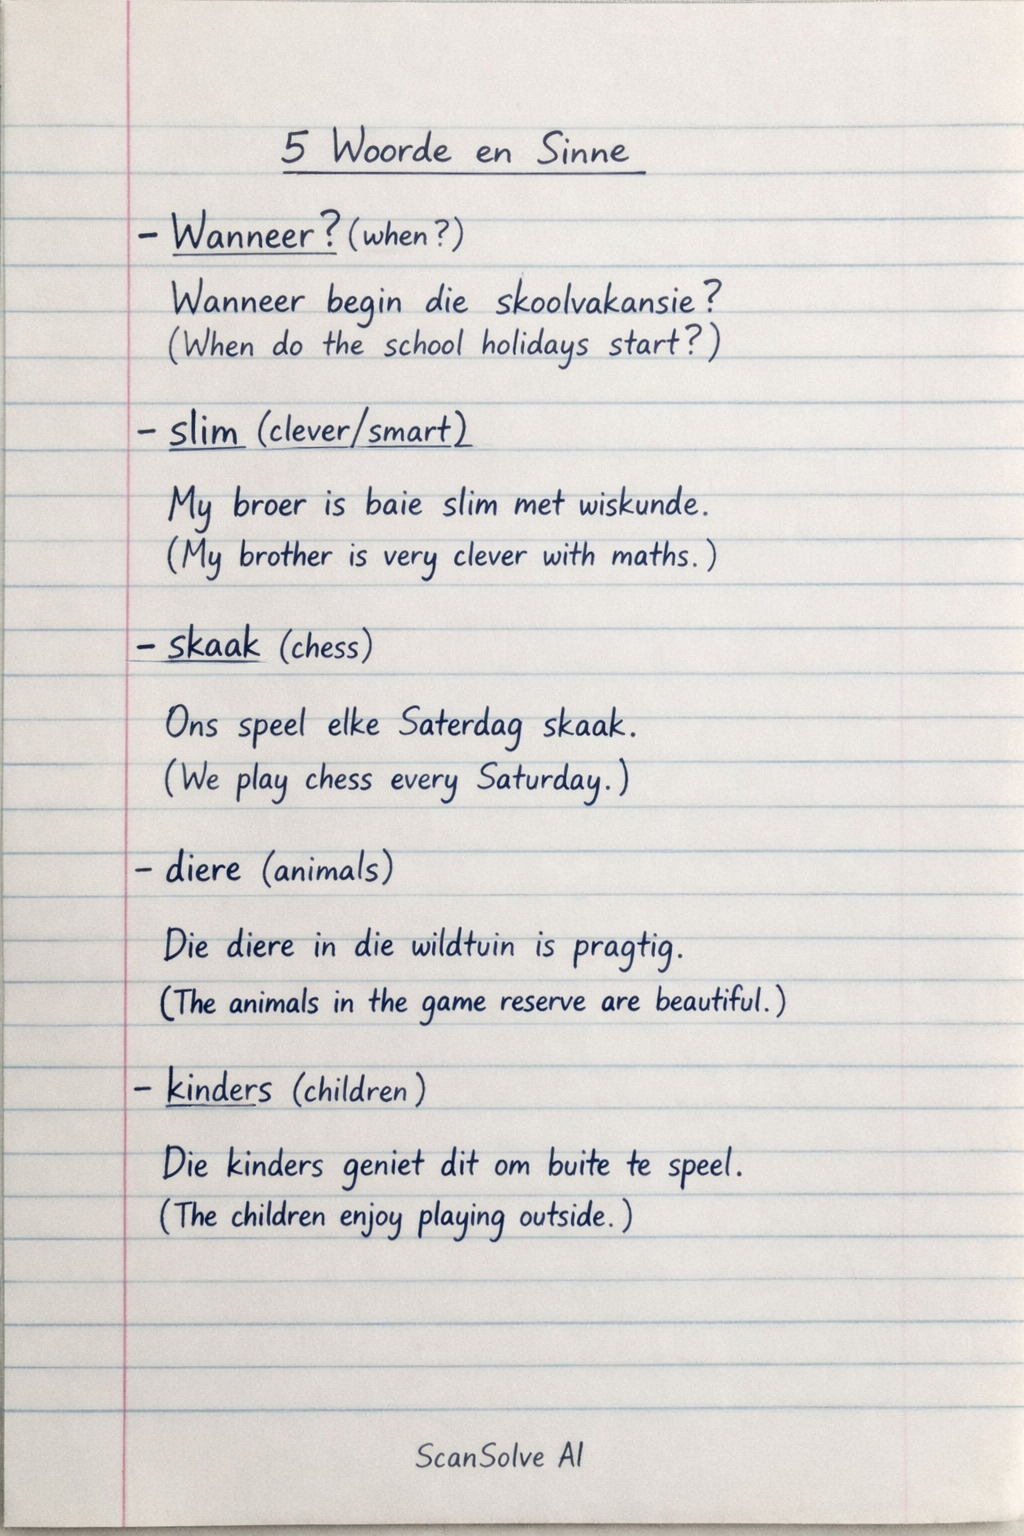 5 Woorde en Sinne
- Wanneer? (when?)
Wanneer begin die skoolvakansie?
(When do the school holidays start?)
- slim (clever/smart)
My broer is baie slim met wiskunde.
(My brother is very clever with maths.)
- skaak (chess)
Ons speel elke Saterdag skaak.
(We play chess every Saturday.)
- diere (animals)
Die diere in die wildtuin is pragtig.
(The animals in the game reserve are beautiful.)
- kinders (children)
Die kinders geniet dit om buite te speel.
(The children enjoy playing outside.)
ScanSolve AI